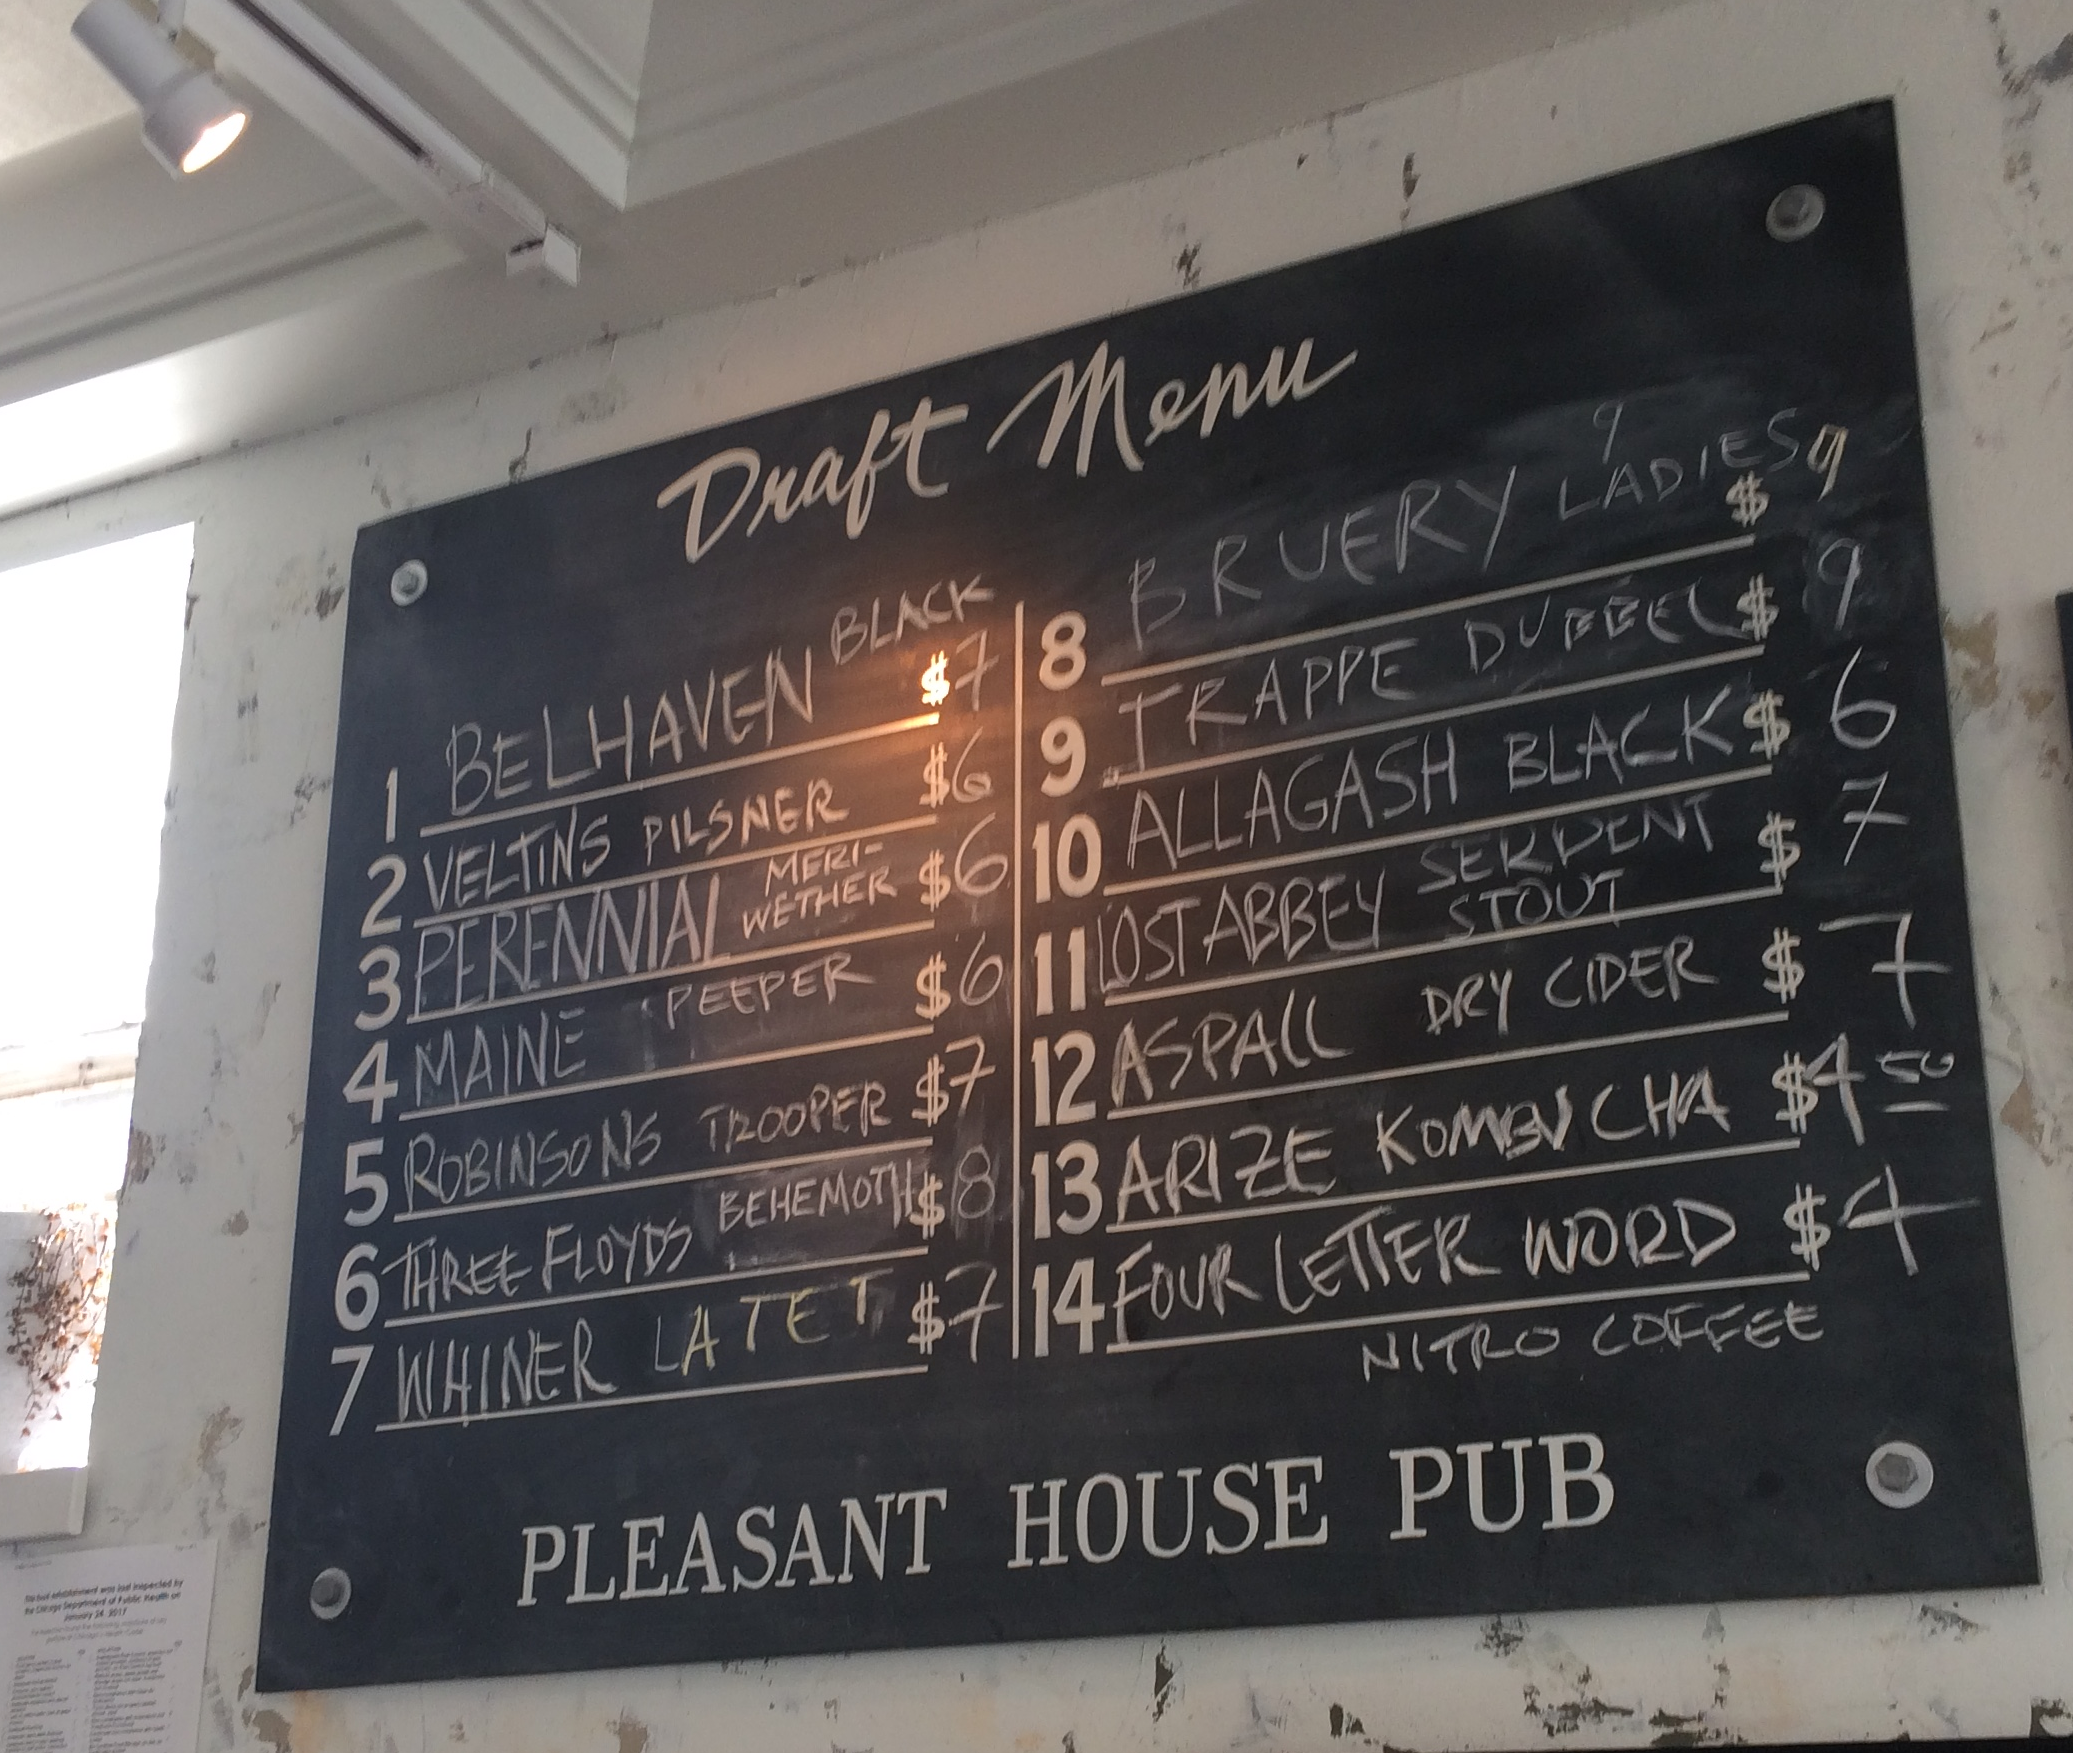 Draft Menu
1 BELHAVEN BLACK $7
2 VELTINS PILSNER $6
3 PERENNIAL MERI-
WETHER $6
4 MAINE PEEPER $6
5 ROBINSONS TROOPER $7
6 THREE FLOYDS BEHEMOTH $8
7 WHINER LATET $7
9
8 BRUERY LADIES $9
9 TRAPPE DUBBEL $9
10 ALLAGASH BLACK $6
11 LOST ABBEY SERPENT
STOUT $7
12 ASPALL DRY CIDER $7
13 ARIZE KOMBUCHA $4 50
14 FOUR LETTER WORD $4
NITRO COFFEE
PLEASANT HOUSE PUB
This food establishment was last inspected by
the Chicago Department of Public Health on
January 24, 2017